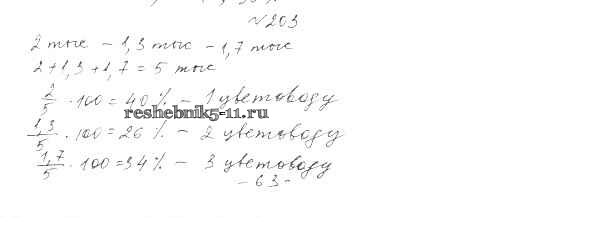 №203
2 тыс – 1,3 тыс – 1,7 тыс
2+1,3+1,7 = 5 тыс
2/5 · 100 = 40 % – 1 цветоводу
reshebnik5-11.ru
1,3/5 · 100 = 26 % – 2 цветоводу
1,7/5 · 100 = 34 % – 3 цветоводу